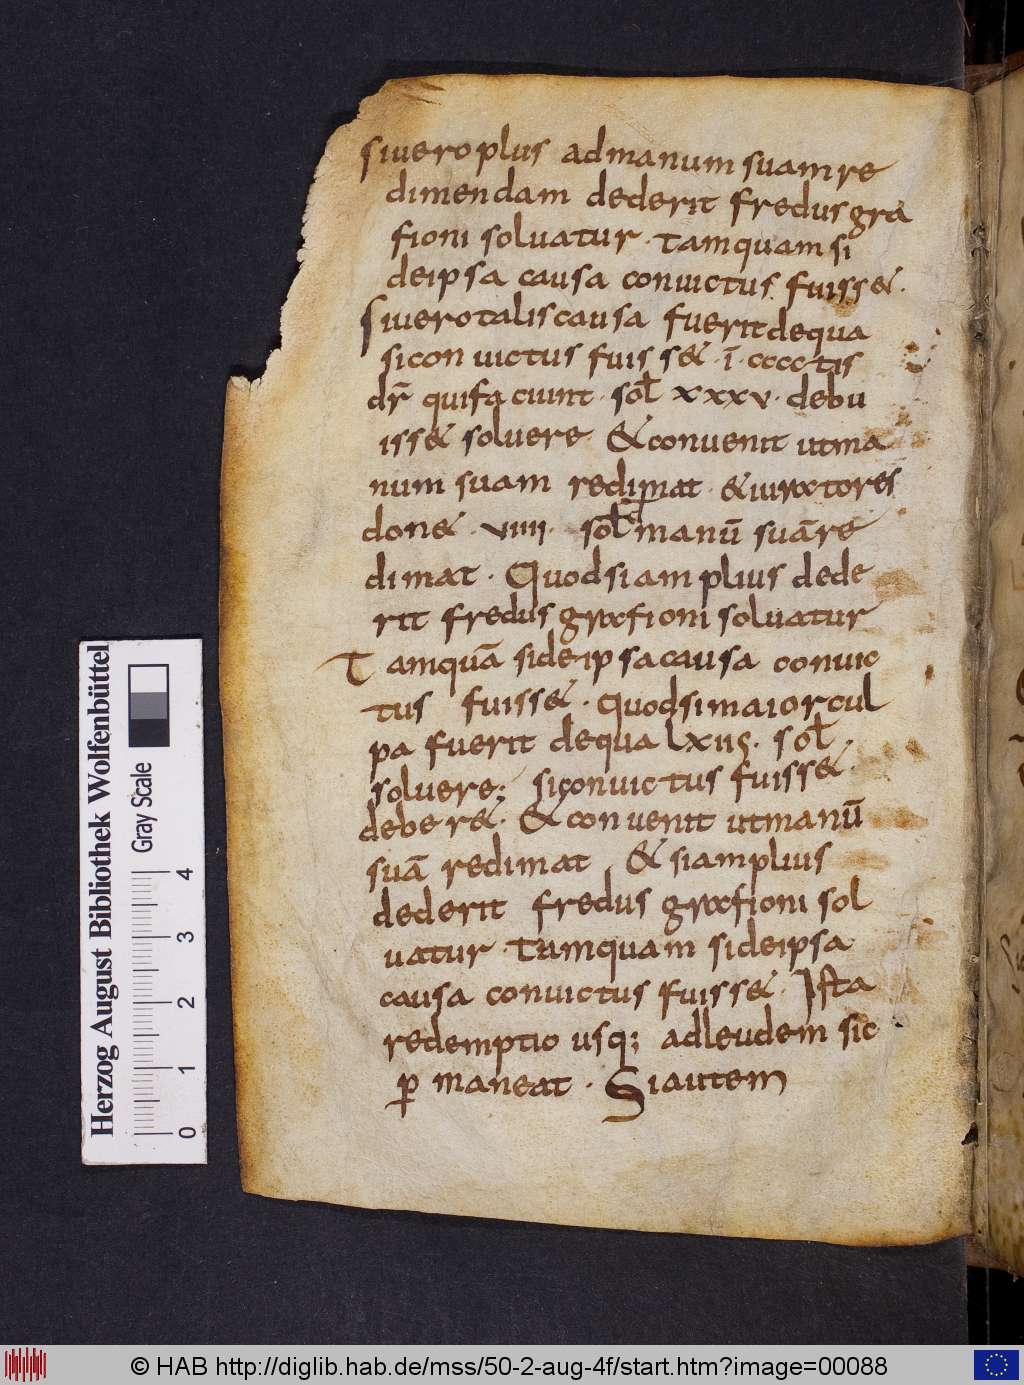 siuero plus ad manum suam re
dimendam dederit fredus gra
fioni soluatur · tamquam si
deipsa causa conuictus fuiss& ·
Siuero talis causa fuerit dequa
si conuictus fuiss& · ī · cccc tis
dr̄ qui faciunt · sol xxxv · debu
iss& soluere & conuenit utma
num suam redimat · & iuratores
don& · viiii · sol manū suā re
dimat · Quodsi am plius dede
rit fredus grafioni soluatur
Tamquā si deipsa causa conuic
tus fuiss& · quodsi maior cul
pa fuerit dequa lxii s · sol ·
soluere; si conuictus fuiss& ·
deber& · & conuenit utmanū
suā redimat & si amplius
dederit fredus grafioni sol
uatur · tamquam si deipsa
causa conuictus fuiss& · Ista
redemptio usq; ad leudem sic
p maneat · Si autem
Herzog August Bibliothek Wolfenbüttel
Gray Scale
0 1 2 3 4
© HAB http://diglib.hab.de/mss/50-2-aug-4f/start.htm?image=00088